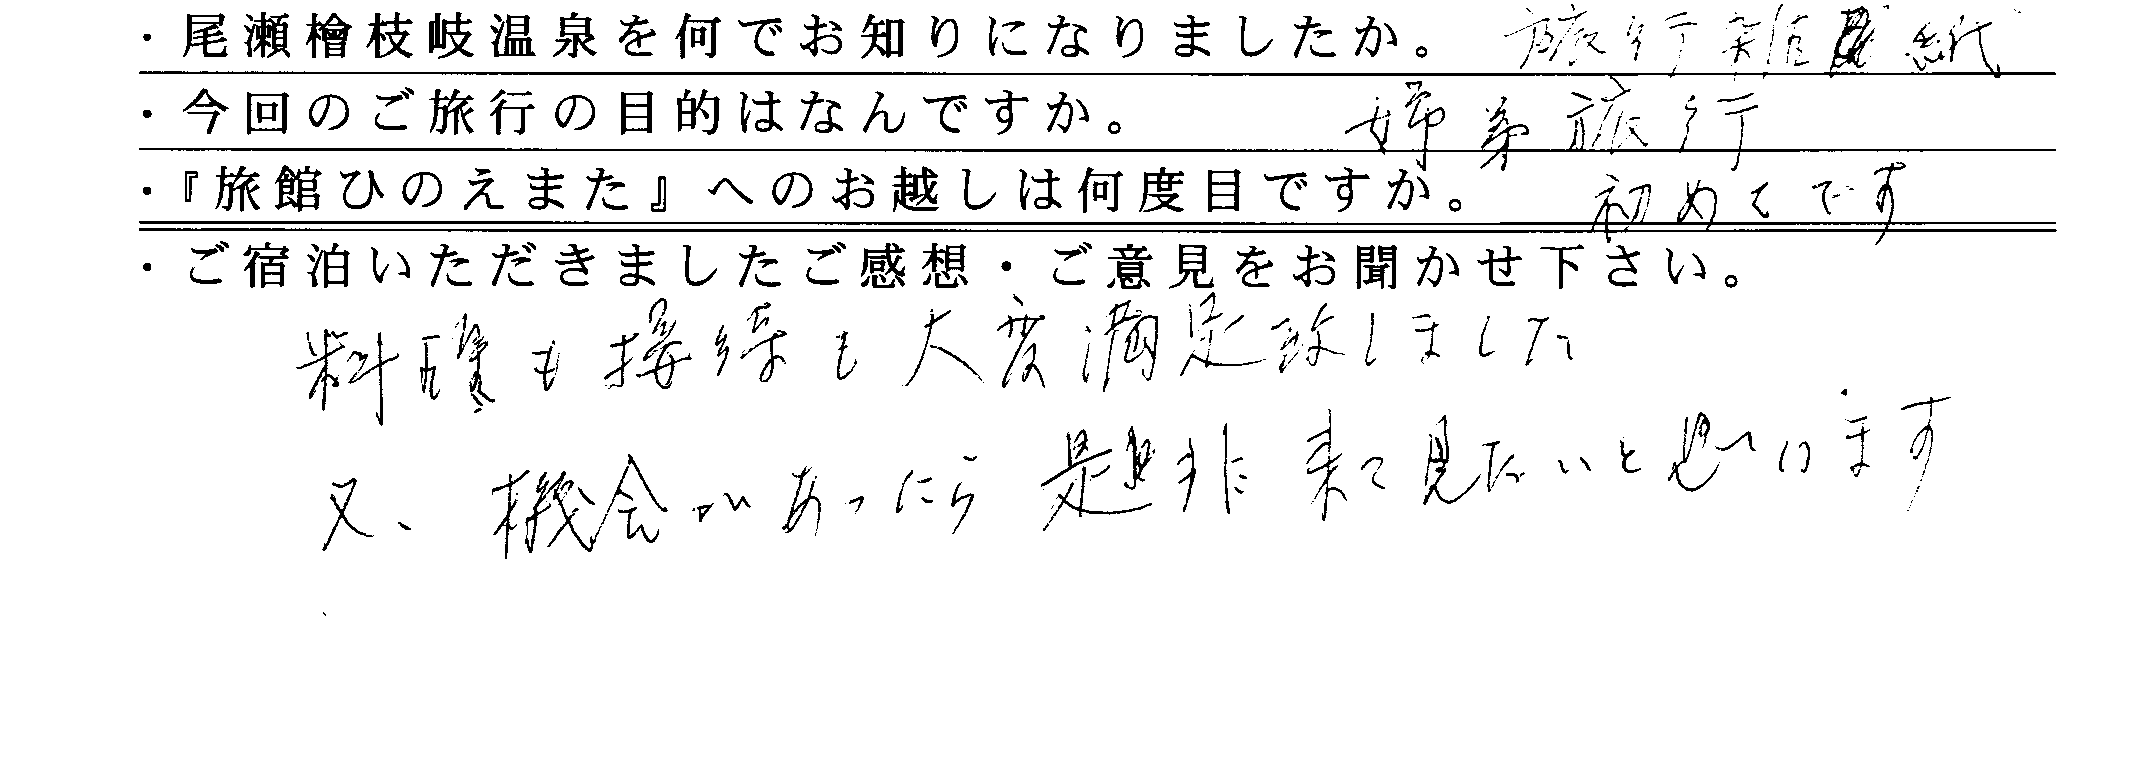 ・尾瀬檜枝岐温泉を何でお知りになりましたか。 旅行雑紙
・今回のご旅行の目的はなんですか。 姉弟旅行
・『旅館ひのえまた』へのお越しは何度目ですか。 初めてです
・ご宿泊いただきましたご感想・ご意見をお聞かせ下さい。
料理も接待も大変満足致しました
又、機会があったら是非来て見たいと思います